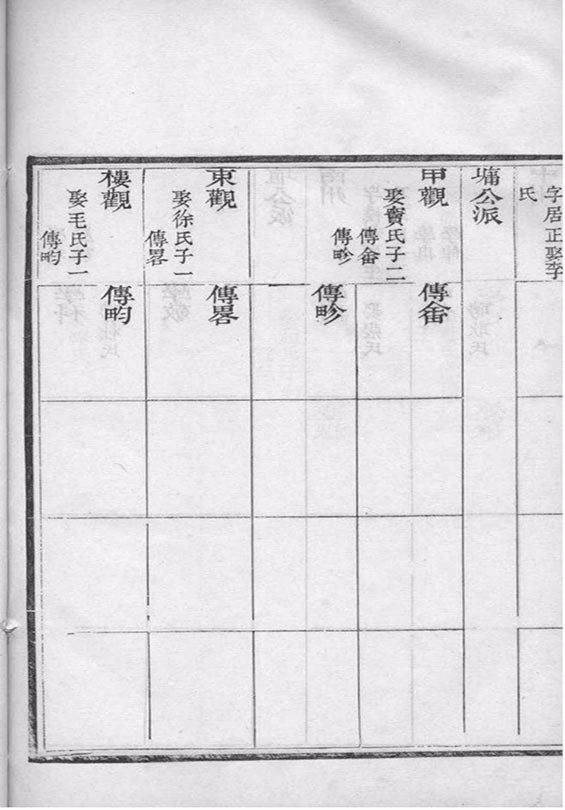 字居正娶李
氏
墉公派
甲觀
娶賣氏子二
傳畬
傳畛
傳畬
傳畛
東觀
娶徐氏子一
傳畧
傳畧
樓觀
娶毛氏子一
傳畇
傳畇